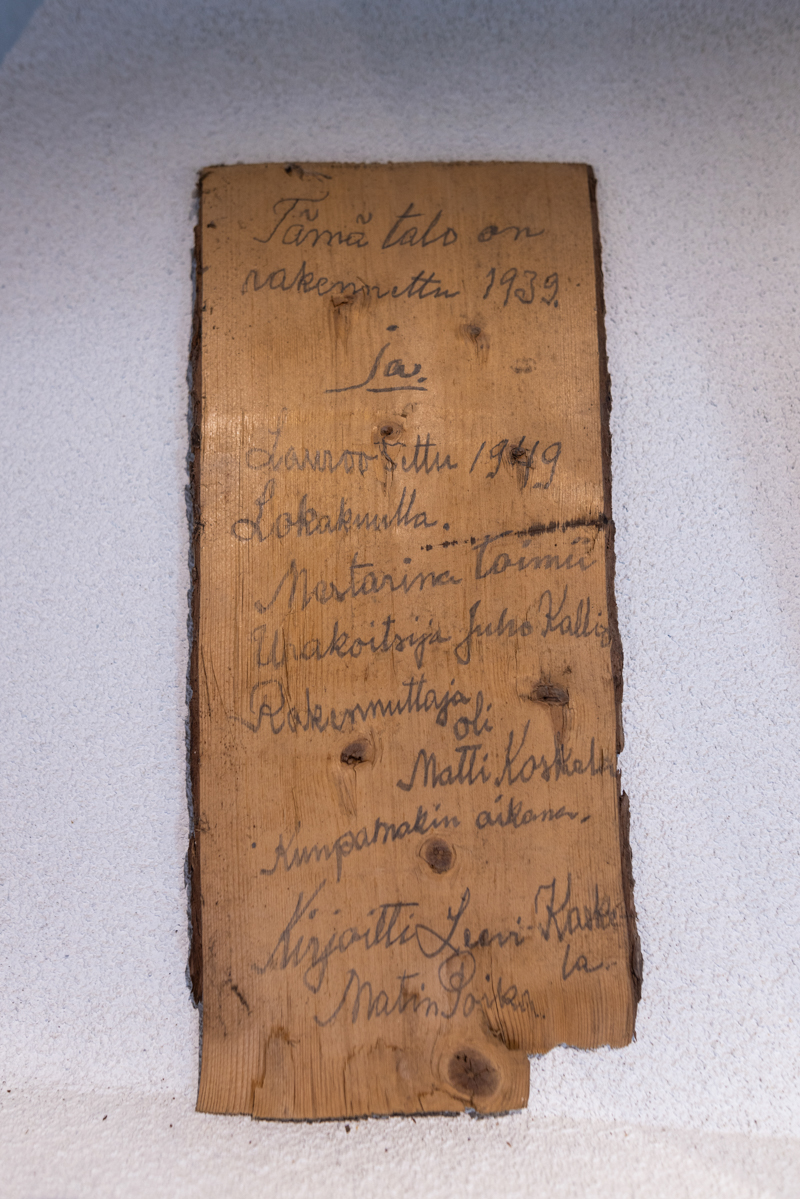 Tämä talo on
rakennettu 1939.
ja.
Lauvoo tittu 1949
Lokakuulla.
Mestarina toimii
Urakoitsija Juho Kallio
Rakennuttaja
oli
Matti Koskela
Kunpamakin aikana.
Kirjoitti Leevi-Koske
la.
Matin Poika.